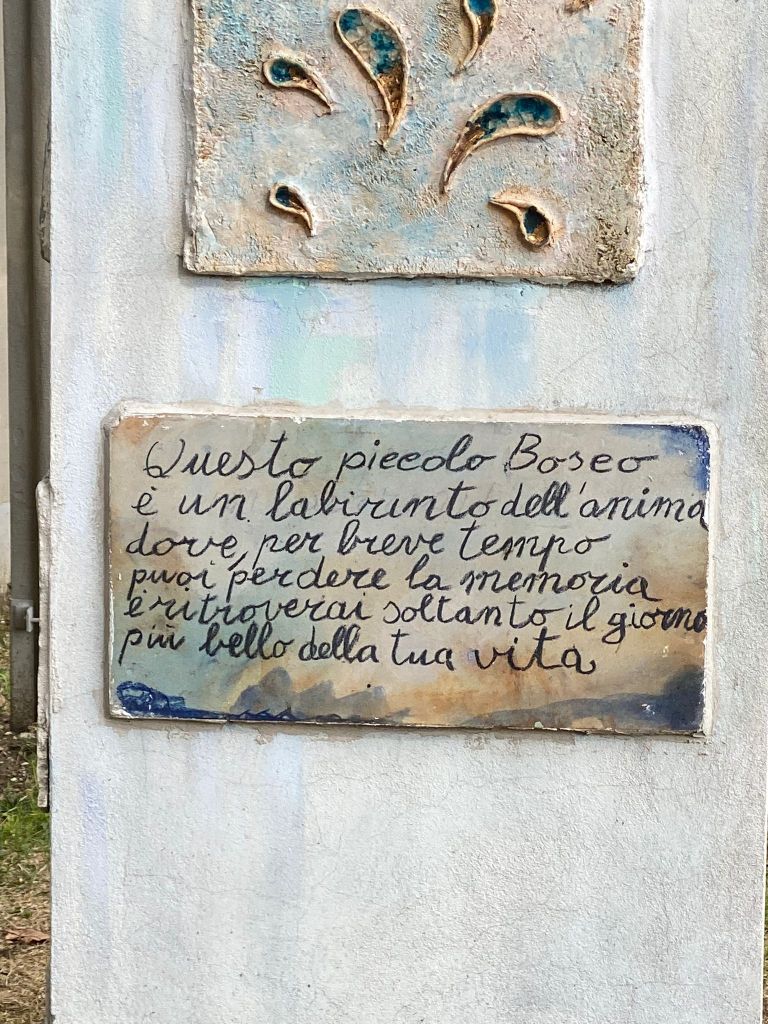 Questo piccolo Bosco
è un labirinto dell'anima
dove, per breve tempo
puoi perdere la memoria
e ritroverai soltanto il giorno
più bello della tua vita